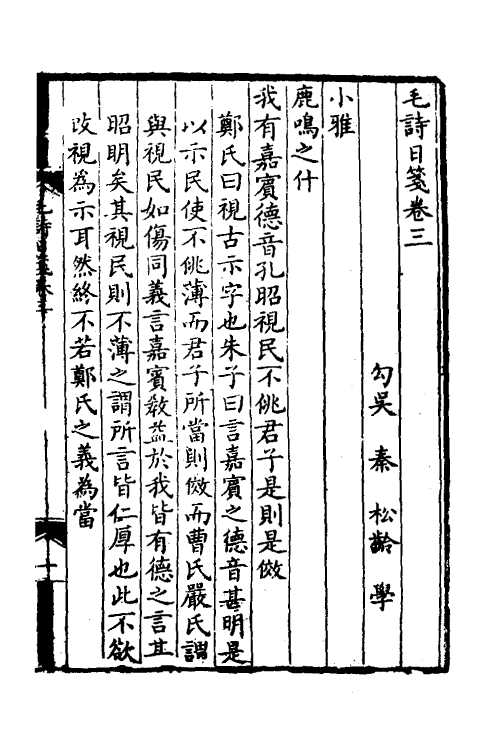 毛詩日箋卷三
勾吳 秦 松齡 學
小雅
鹿鳴之什
我有嘉賓德音孔昭視民不佻君子是則是傚
鄭氏曰視古示字也朱子曰言嘉賓之德音甚明是
以示民使不佻薄而君子所當則傚而曹氏嚴氏謂
與視民如傷同義言嘉賓教益於我皆有德之言其
昭明矣其視民則不薄之謂所言皆仁厚也此不欲
改視為示耳然終不若鄭氏之義為當
毛詩日箋卷三
一